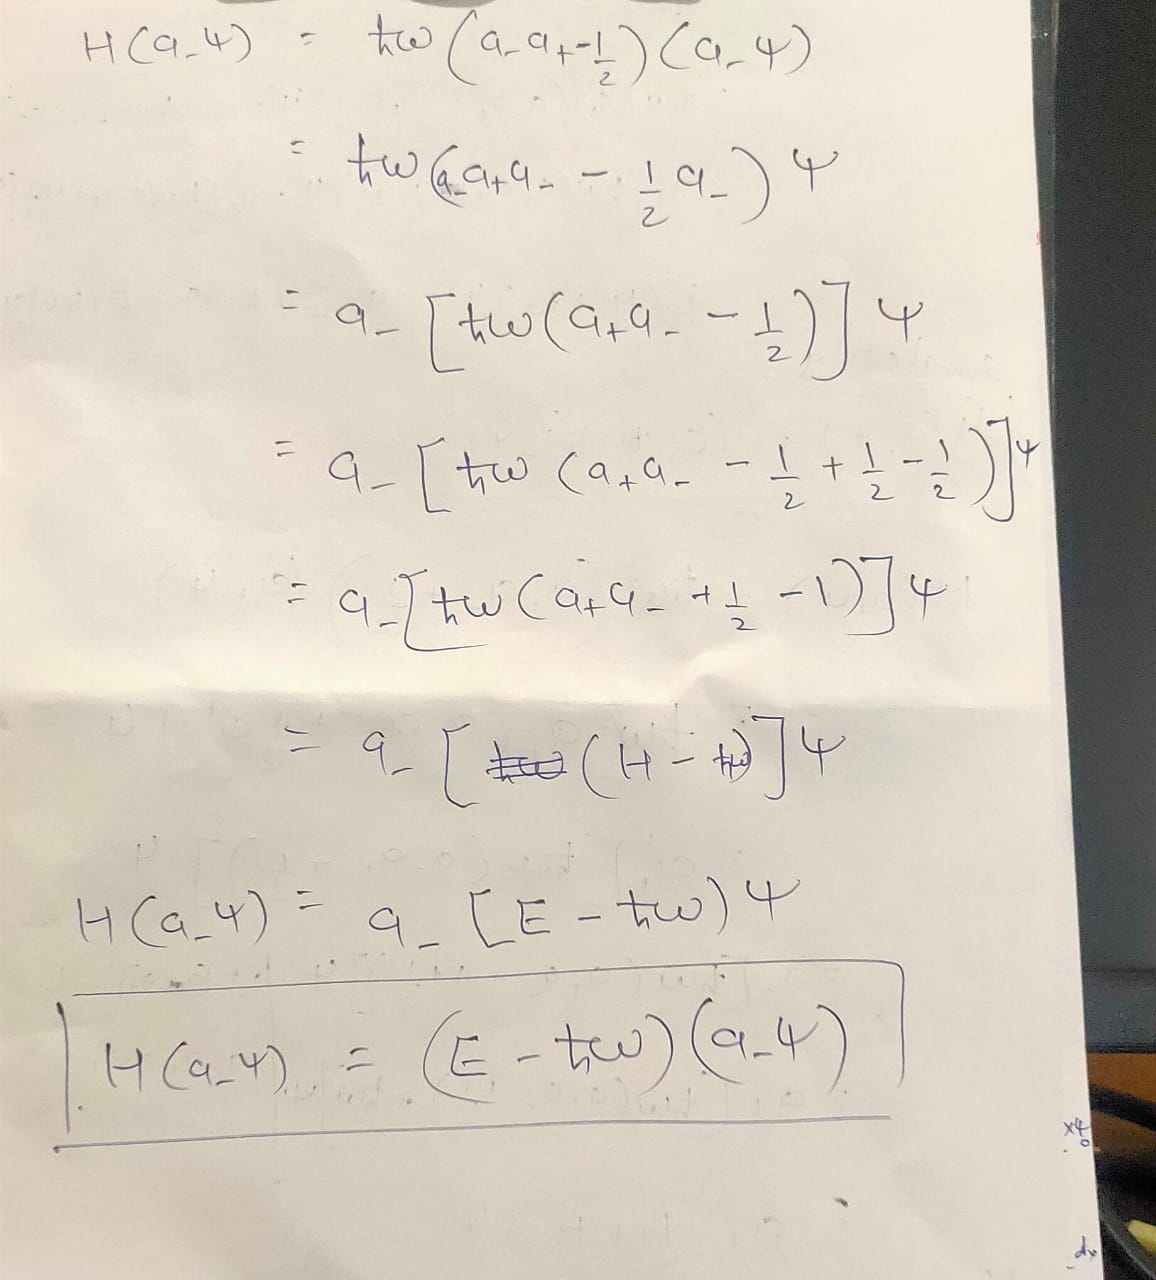 H(a_ψ) = ħω(a_a₊-½)(a_ψ)
= ħω(a_a₊a_ - ½a_)ψ
= a_[ħω(a₊a_ - ½)]ψ
= a_[ħω(a₊a_ - ½ + ½ - ½)]ψ
= a_[ħω(a₊a_ + ½ - 1)]ψ
= a_[(H - ħω)]ψ
H(a_ψ) = a_[E - ħω)ψ
H(a_ψ) = (E - ħω)(a_ψ)
dx